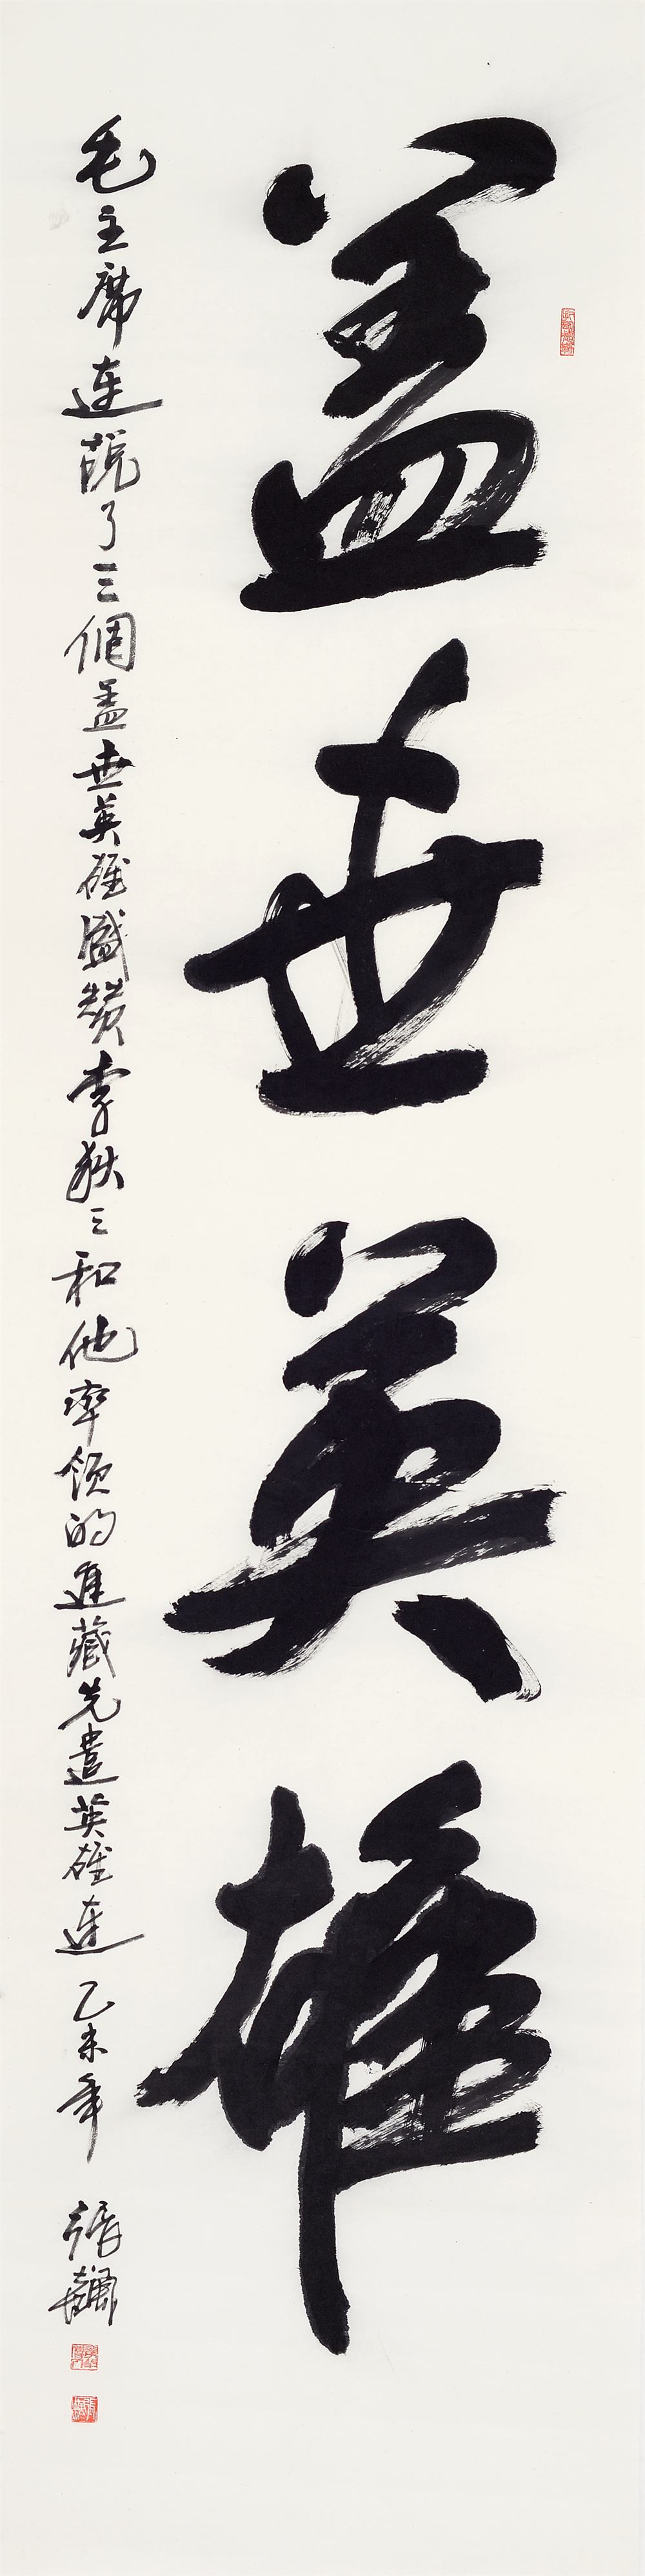 盖世英雄
毛主席连说了三個盖世英雄盛赞李狄三和他率领的進藏先遣英雄连 乙未年 張